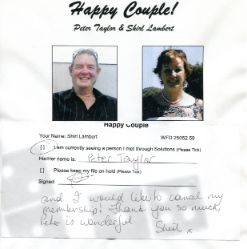 Happy Couple!
Peter Taylor & Shirl Lambert
Happy Couple
Your Name: Shirl Lambert WFO 25052 59
[] I am currently seeing a person I met through Solutions (Please Tick)
His/her name is: Peter Taylor
[] Please keep my file on hold (Please Tick)
Signed:
and I would like to cancel my
membership! Thank you so much,
Pete is wonderful
Shirl x